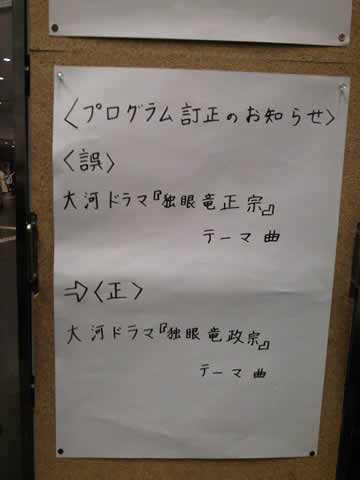 〈プログラム訂正のお知らせ〉
〈誤〉
大河ドラマ『独眼竜正宗』
テーマ曲
⇨〈正〉
大河ドラマ『独眼竜政宗』
テーマ曲